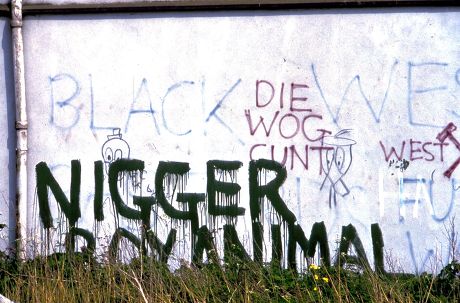 BLACK WES
DIE
WOG
CUNT
WEST
NIGGER
BOY ANIMAL